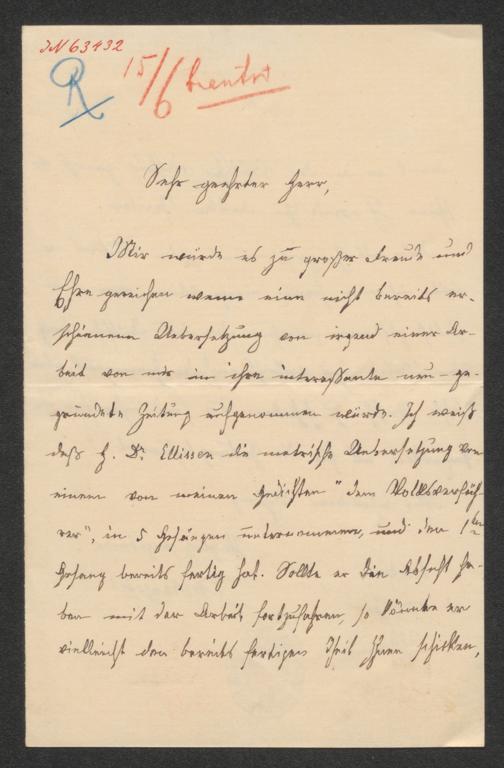 IN 63432
R 15/6
Sehr geehrter Herr,
Mir würde es zu großer Freude und
Ehre gereichen wenn eine nicht bereits er-
schienene Uebersetzung von irgend einer Ar-
beit von mir in ihre interessante neu-ge-
gründete Zeitung aufgenommen würde. Ich weiß
daß H. Dr. Ellissen die metrische Uebersetzung von
einem von meinen Gedichten "dem Volksverfüh-
rer", in 5 Gesängen unternommen, und den 1ten
Gesang bereits fertig hat. Sollte er die Absicht ha-
ben mit der Arbeit fortzufahren, so könnte er
vielleicht den bereits fertigen Theil Ihnen schicken,